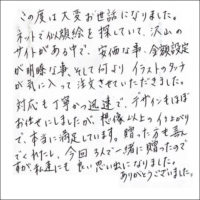 この度は大変お世話になりました。
ネットで似顔絵を探していて、沢山の
サイトがある中で、安価な事、金額設定
が明瞭な事、そして何よりイラストのタッチ
が気に入って注文させていただきました。
対応も丁寧かつ迅速で、デザインもほぼ
お任せにしましたが、想像以上の仕上がり
で、本当に満足しています。贈った方も喜ん
でくれたし、今回3人で一緒に贈ったので
すが、私達にも良い思い出になりました。
ありがとうございました。